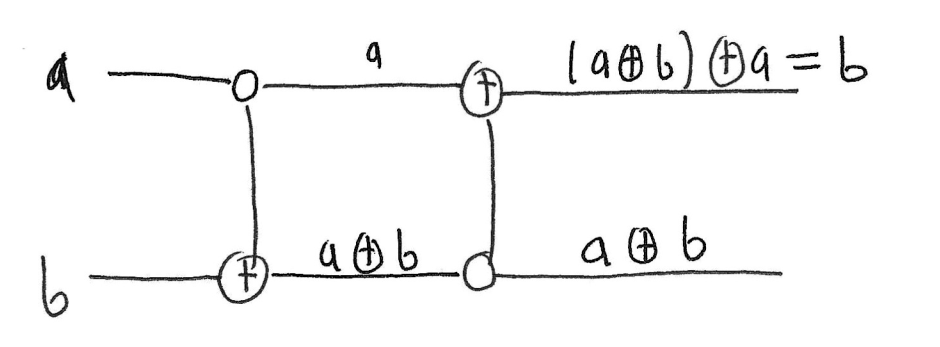 a a (a⊕b)⊕a = b
b a⊕b a⊕b